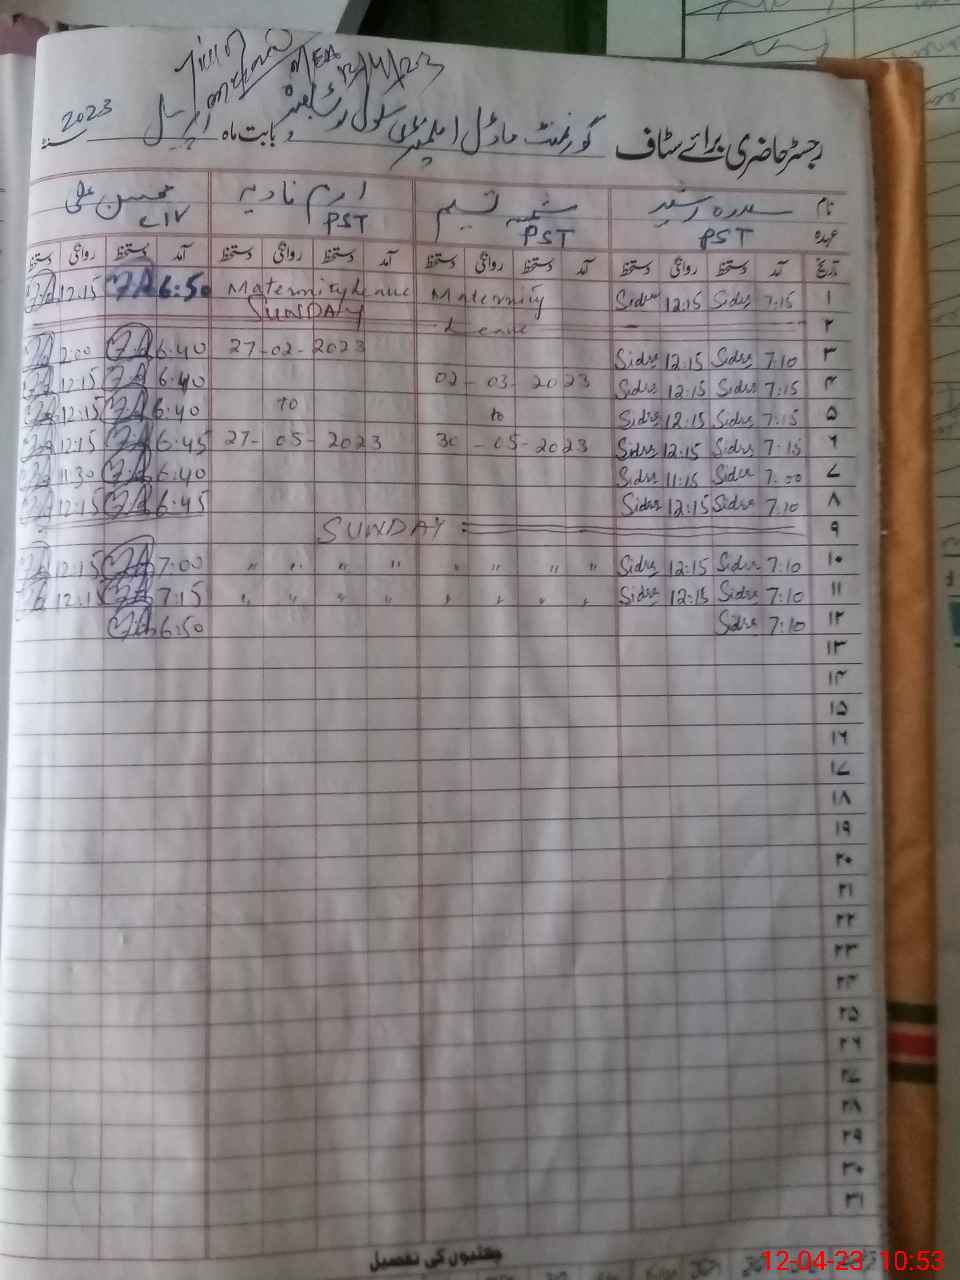 MEA 12/4/23
رجسٹر حاضری برائے سٹاف گورنمنٹ ماڈل ایلیمنٹری سکول بابت ماہ اپریل سنہ 2023
نام سدرہ رشید شمیم ارم نادیہ محسن علی
عہدہ PST PST PST
تاریخ آمد دستخط روانگی دستخط آمد دستخط روانگی دستخط آمد دستخط روانگی دستخط آمد دستخط روانگی دستخط
۱ 7:15 Sidra 12:15 Sidra Maternity Leave Maternity Leave 6:50 12:15
۲ SUNDAY
۳ 7:10 Sidra 12:15 Sidra 27-02-2023 6:40
۴ 7:15 Sidra 12:15 Sidra 02-03-2023 6:40 12:15
۵ 7:15 Sidra 12:15 Sidra to to 6:40 12:15
۶ 7:15 Sidra 12:15 Sidra 30-05-2023 27-05-2023 6:45 12:15
۷ 7:00 Sidra 11:15 Sidra 6:40 11:30
۸ 7:10 Sidra 12:15 Sidra 6:45 12:15
۹ SUNDAY
۱۰ 7:10 Sidra 12:15 Sidra " " " " " " " " 7:00 12:15
۱۱ 7:10 Sidra 12:15 Sidra " " " " " " " " 7:15
۱۲ 7:10 Sidra 6:50
۱۳
۱۴
۱۵
۱۶
۱۷
۱۸
۱۹
۲۰
۲۱
۲۲
۲۳
۲۴
۲۵
۲۶
۲۷
۲۸
۲۹
۳۰
۳۱
چھٹیوں کی تفصیل
12-04-23 10:53